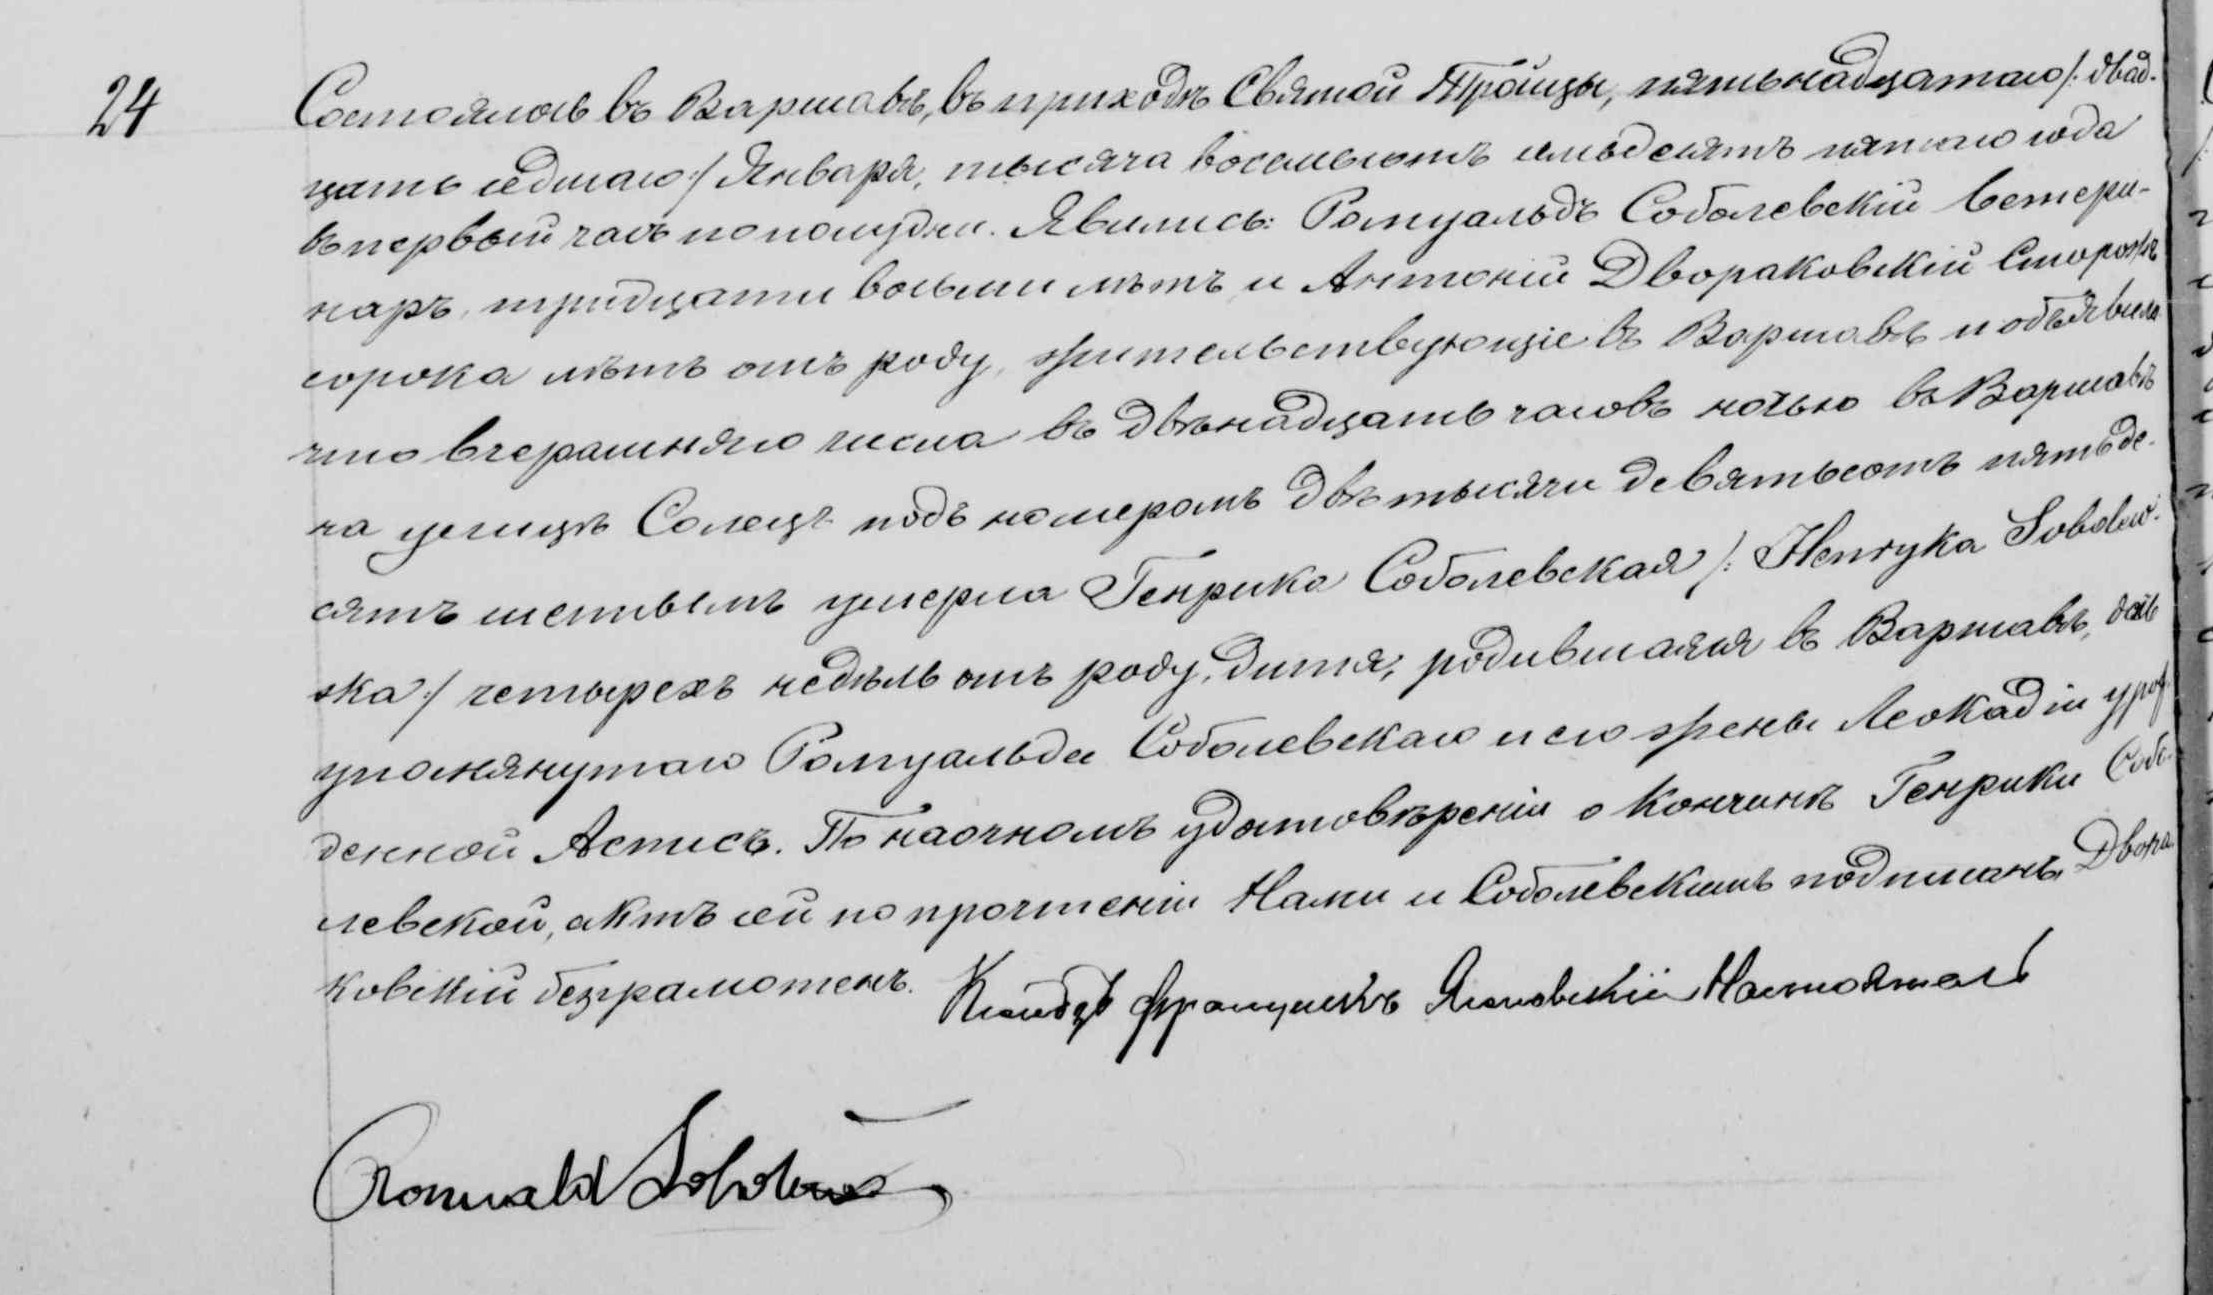 24
Состоялось въ Варшавѣ, въ приходѣ Святой Троицы, пятьнадцатаго /: двад-
цать седмаго :/ Января, тысяча восемьсотъ семьдесятъ пятаго года
въ первый часъ по полудни. Явились: Ромуальдъ Соболевскій Ветери-
наръ, тридцати восьми лѣтъ и Антоній Двораковскій Сторожъ
сорока лѣтъ отъ роду, жительствующіе въ Варшавѣ и объявили
что вчерашняго числа въ двѣнадцать часовъ ночью въ Варшавѣ
на улицѣ Солецъ подъ номеромъ двѣ тысячи девятьсотъ пятьде-
сятъ шестымъ умерла Генрика Соболевская /: Henryka Sobolew-
ska :/ четырехъ недѣль отъ роду, дитя, родившаяся въ Варшавѣ, дочь
упомянутаго Ромуальда Соболевскаго и его жены Леокадіи урож-
денной Астисъ. По наочномъ удостовѣреніи о кончинѣ Генрики Собо-
левской, актъ сей по прочтеніи Нами и Соболевскимъ подписанъ. Двора-
ковскій безграмотенъ. Ксендзъ Францишекъ Настоятель
Romuald Sobolewski